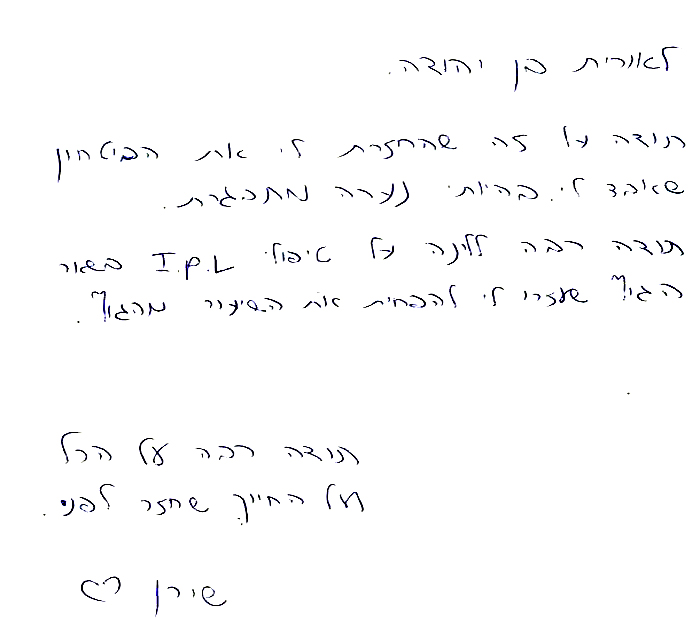 לאורית בן יהודה.
תודה על זה שהחזרת לי את הביטחון
שאיבד לי בהיותי נערה מתבגרת.
תודה רבה ללינה על טיפולי I.P.L בשאר
הגוף שעזרו לי להפחית את השיעור מהגוף.
תודה רבה על הכל
ועל החיוך שחזר לפני.
שירן ♡